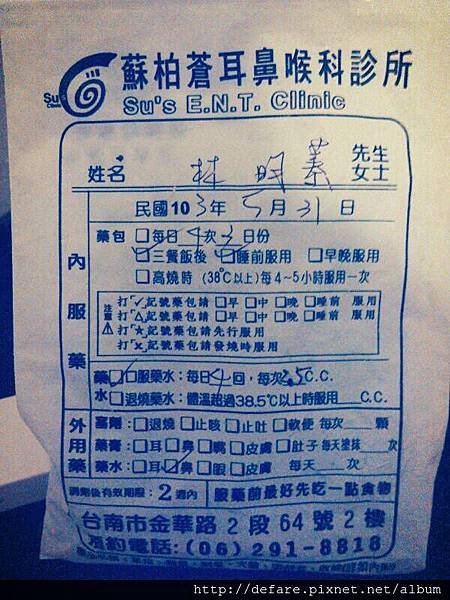 蘇柏蒼耳鼻喉科診所
Su's E.N.T. Clinic
姓名 林明蓁 先生 女士
民國103年5月31日
內服藥
藥包 □每日4次3日份
☑三餐飯後 ☑睡前服用 □早晚服用
□高燒時 (38℃以上)每4~5小時服用一次
注意
打✓記號藥包請□早□中□晚□睡前 服用
打△記號藥包請□早□中□晚□睡前 服用
打★記號藥包請先行服用
打×記號藥包請發燒時服用
藥水 ☑口服藥水：每日4回，每次3.5C.C.
□退燒藥水：體溫超過38.5℃以上時服用 C.C.
外用藥
塞劑：□退燒 □止咳 □止吐 □軟便 每次 顆
藥膏：□耳□鼻 □嘴 □皮膚 □肚子 每天塗抹 次
藥水：□耳☑鼻 □眼 □皮膚 每天 次
調劑後有效期限：2週內 服藥前最好先吃一點食物
台南市金華路2段64號2樓
預約電話：(06)291-8818
http://defare.pixnet.net/album